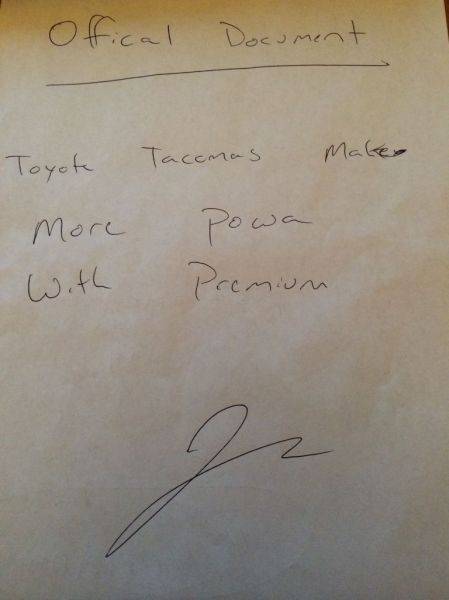 Offical Document
Toyota Tacomas Make
More Powa
With Premium